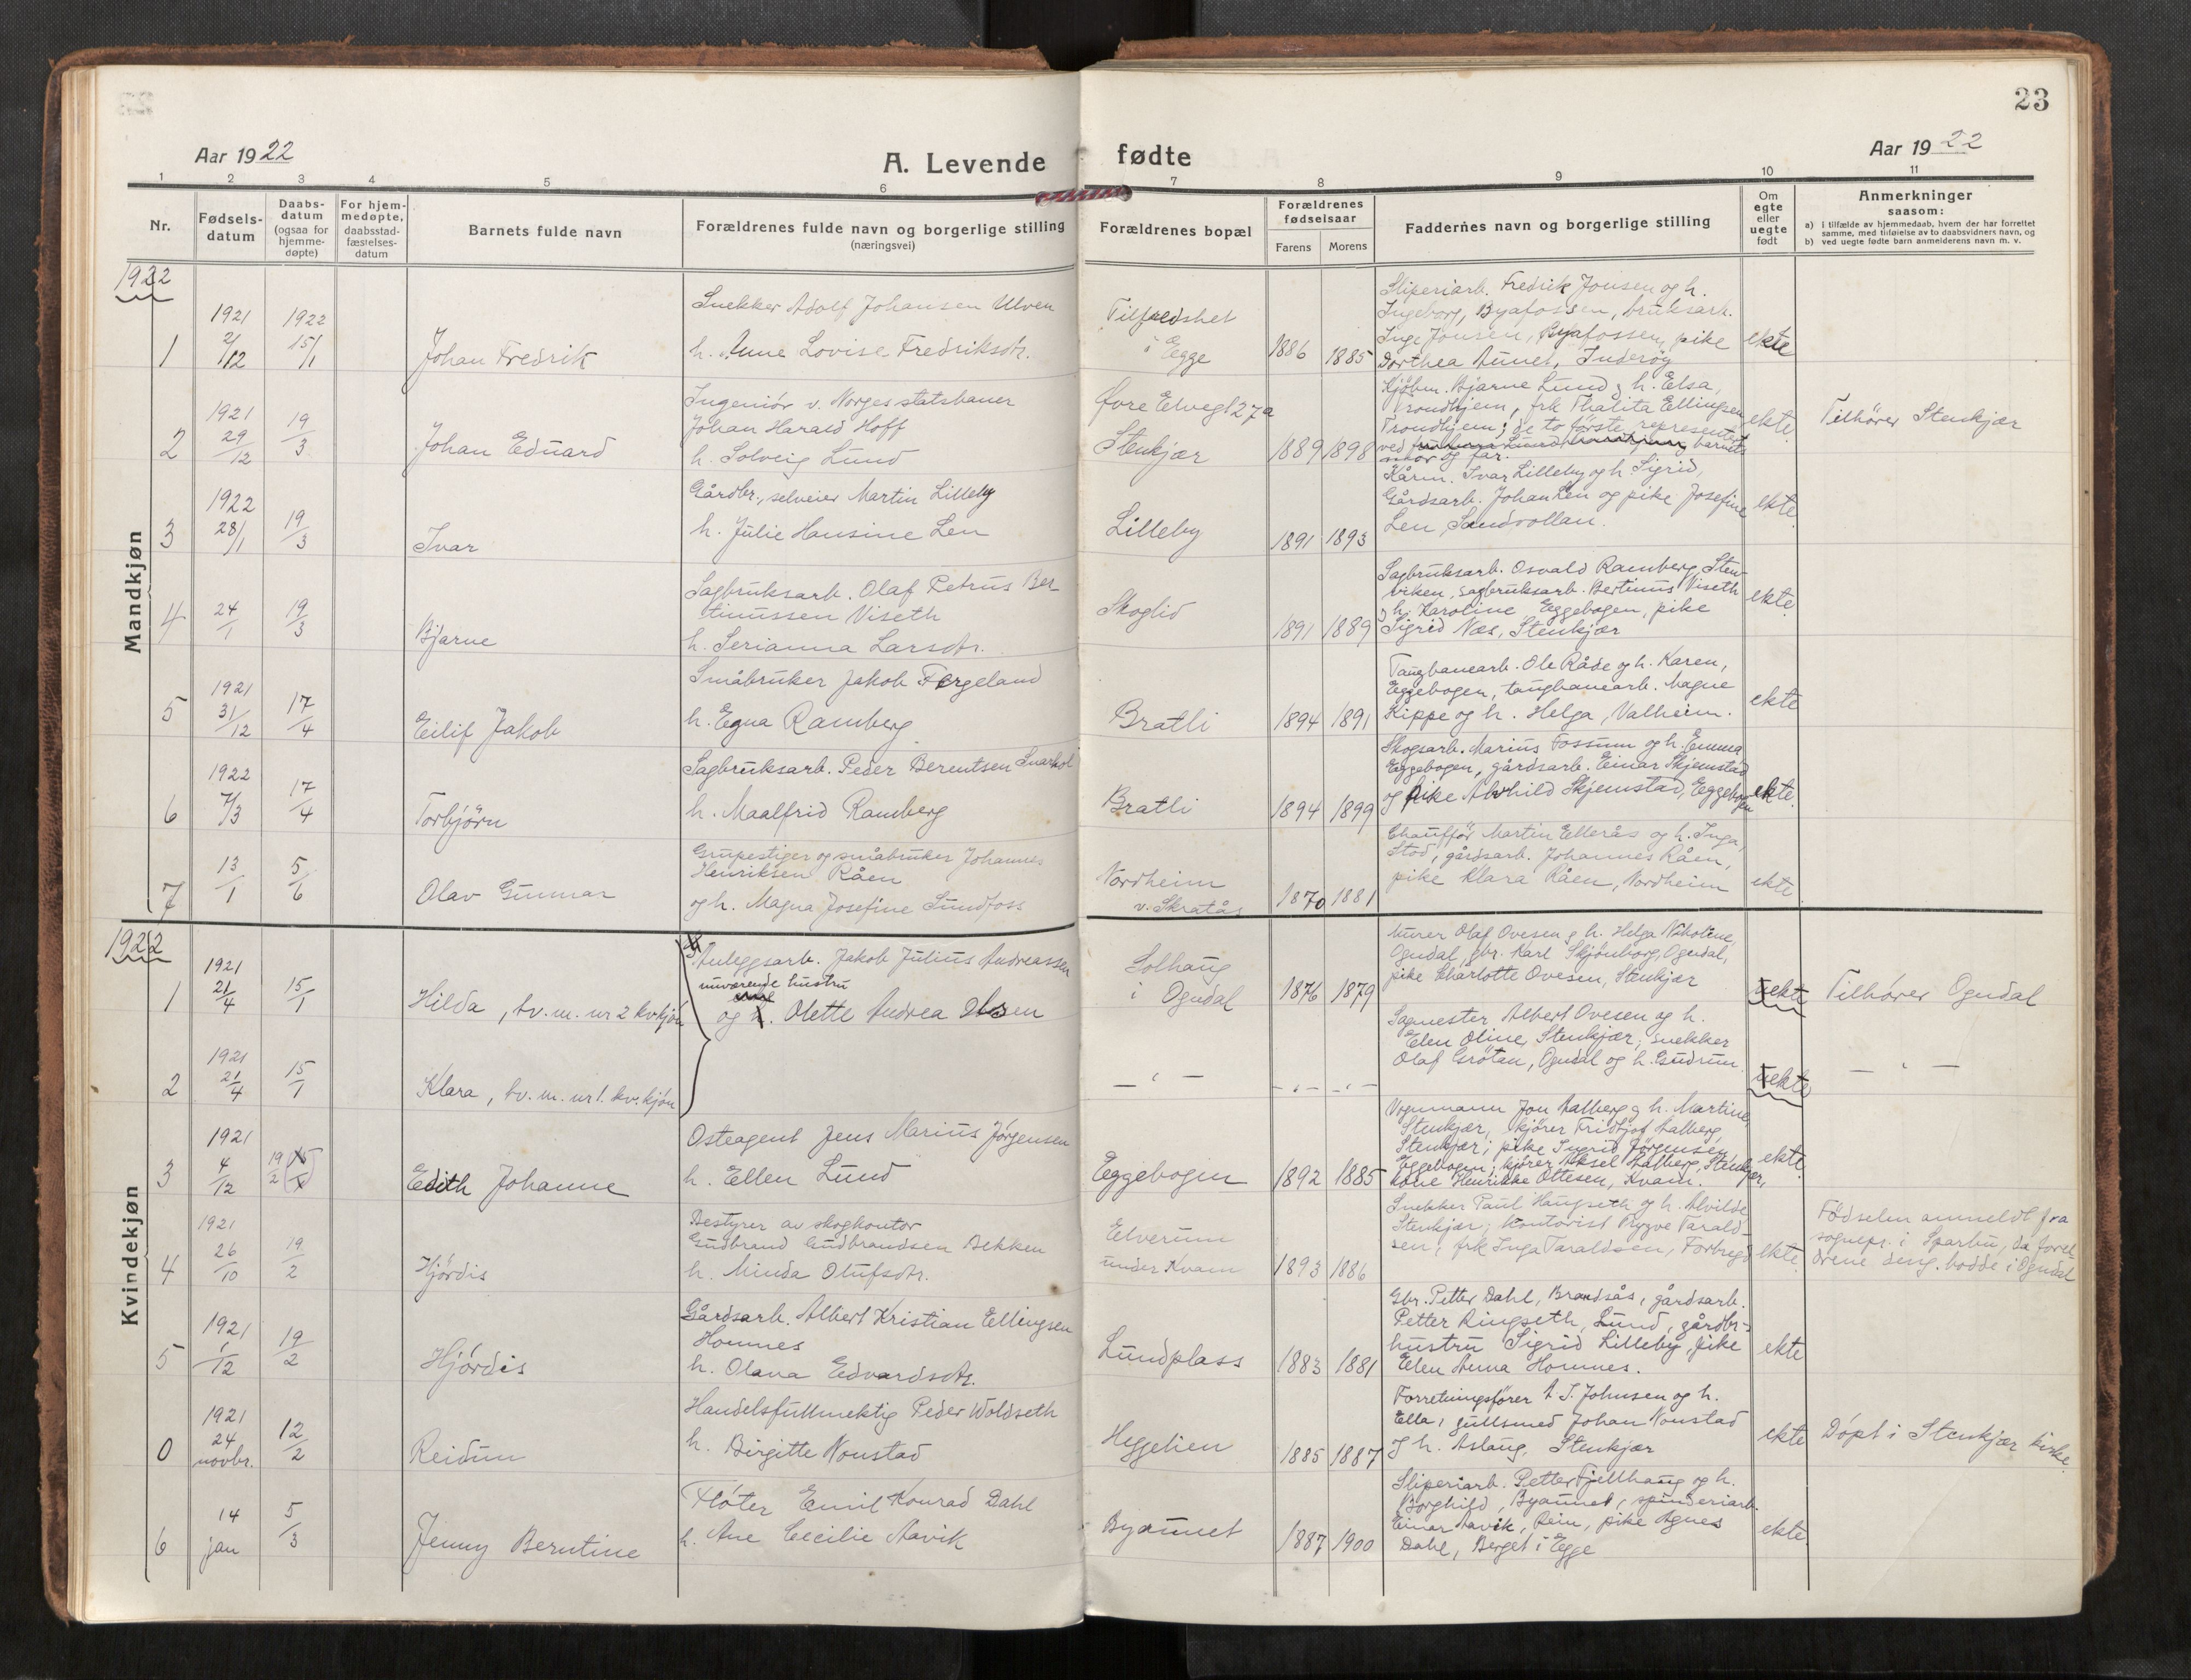 23
Aar 1922
A. Levende fødte
Aar 1922
1 2 3 4 5 6 7 8 9 10 11
Nr.
Fødsels-
datum
Daabs-
datum
(ogsaa for
hjemme-
døpte)
For hjem-
medøpte,
daabsstad-
fæstelses-
datum
Barnets fulde navn
Forældrenes fulde navn og borgerlige stilling
(næringsvei)
Forældrenes bopæl
Forældrenes
fødselsaar
Farens Morens
Faddernes navn og borgerlige stilling
Om
egte
eller
uegte
født
Anmerkninger
saasom:
a) i tilfælde av hjemmedaab, hvem der har forrettet
samme, med tilføielse av to daabsvidners navn, og
b) ved uegte fødte barn anmelderens navn m. v.
Mandkjøn
1922
1
1921
2/12
1922
15/1
Johan Fredrik
Snekker Adolf Johansen Ulven
h. Anne Lovise Fredriksdtr.
Tilfredshet
i Egge
1886 1885
Sliperiarb. Fredrik Jonsen og h.
Ingeborg, Byafossen, bruksarb.
Inge Jonsen, Byafossen, pike
Dorthea Aunet, Inderøy
ekte
2
1921
29/12
19/3
Johan Eduard
Ingeniør v. Norges statsbaner
Johan Harald Hoff
h. Solveig Lund
Øvre Elvegt 27a
Stenkjær
1889 1898
Kjøbm. Bjarne Lund og h. Elsa,
Trondhjem, frk Thalita Ellingsen
Trondhjem; de to første representert
ved barnets
mor og far.
ekte
Tilhører Stenkjær
3
1922
28/1
19/3
Ivar
Gårdbr., selveier Martin Lilleby
h. Julie Hansine Len
Lilleby
1891 1893
Kårm. Ivar Lilleby og h. Sigrid,
Gårdsarb. Johan Len og pike Josefine
Len, Sandvollan.
ekte
4
24/1
19/3
Bjarne
Sagbruksarb. Olaf Petrus Ber-
tinussen Viseth
h. Serianna Larsdtr.
Skoglid
1891 1889
Sagbruksarb. Osvald Ramberg, Sten-
viken, sagbruksarb. Bertinus Viseth
og h. Karoline, Eggebogen, pike
Sigrid Næs, Stenkjær
ekte
5
1921
31/12
17/4
Eilif Jakob
Småbruker JakobFørgeland
h. Egna Ramberg
Bratli
1894 1891
Taugbanearb. Ole Råde og h. Karen,
Eggebogen, taugbanearb. Magne
Kippe og h. Helga, Valheim.
ekte
6
1922
7/3
17/4
Torbjörn
Sagbruksarb. Peder Berentsen
h. Maalfrid Ramberg
Bratli
1894 1899
Skogsarb. Marius Fossum og h. Emma
Eggebogen, gårdsarb. Einar Skjemstad
og pike Alvhild Skjemstad, Eggebogen
ekte.
7
13/1
5/6
Olav Gunnar
Grupestiger og småbruker Johannes
Henriksen Råen
og h. Magna Josefine Sundfoss
Nordheim
v. Skratås
1870 1881
Chauffør Martin Ellerås og h. Inga,
Stod, gårdsarb. Johannes Råen,
pike Klara Råen, Nordheim
ekte
Kvindekjøn
1922
1
1921
21/4
15/1
Hilda, tv. m. nr 2 kv.kjøn
Anleggsarb. Jakob Julius Andreassen
nuværende hustru
og h. Olette Andrea Olsen
Solhaug
i Ogndal
1876 1879
Murer Olaf Ovesen og h. Helga Nikoline,
Ogndal, gbr. Karl Skjönborg, Ogndal,
pike Charlotte Ovesen, Stenkjær
uekte
Tilhører Ogndal
2
1921
21/4
15/1
Klara, tv. m. nr 1. kv.kjøn
— " —
- " - - " -
Sagmester Albert Ovesen og h.
Elen Oline, Stenkjær, snekker
Olaf Grötan, Ogndal og h. Gudrun.
uekte
— " —
3
1921
4/12
19/2
Edith Johanne
Osteagent Jens Marius Jørgensen
h. Ellen Lund
Eggebogen
1892 1885
Vognmann Jon Aalberg og h. Martine,
Stenkjær, kjører Fridtjof Aalberg,
Stenkjær; pike Ingrid Jørgensen,
Eggebogen; kjører Aksel Aalberg, Stenkjær,
kone Henrikke Ottesen, Kvam.
ekte
4
1921
26/10
19/2
Hjördis
Bestyrer av skogkontor
Gudbrand Gudbrandsen Bekken
h. Minda Olufsdtr.
Elverum
under Kvam
1893 1886
Snekker Paul Haugseth og h. Alvilde
Stenkjær; kontorist Trygve Tarald-
sen, frk Inga Taraldsen, Forbregd
ekte.
Födselen anmeldt fra
sognepr. i Sparbu, da forel-
drene deng. bodde i Ogndal
5
1921
1/12
19/2
Hjördis
Gårdsarb. Albert Kristian Ellingsen
Homnes
h. Olava Edvardsdtr.
Lundplass
1883 1881
Gbr. Petter Dahl, Brandsås, gårdsarb.
Petter Ringseth, Lund, gårdbr-
hustru Sigrid Lilleby, pike
Elen Anna Homnes.
ekte
0
1921
24
novbr.
12/2
Reidun
Handelsfullmektig Peder Woldseth
h. Birgitte Nonstad
Heggelien
1885 1887
Forretningsfører A. S. Johnsen og h.
Ella, gullsmed Johan Nonstad
og h. Aslaug, Stenkjær
ekte
Döpt i Stenkjær kirke.
6
14
jan
5/3
Jenny Berntine
Fløter Emil Konrad Dahl
h. Ane Cecilie Aavik
Byaunet
1887 1900
Sliperiarb. Petter Fjellhaug og h.
Borghild, Byaunet, spinderiarb.
Einar Aavik, Rein, pike Agnes
Dahl, Berget i Egge
ekte